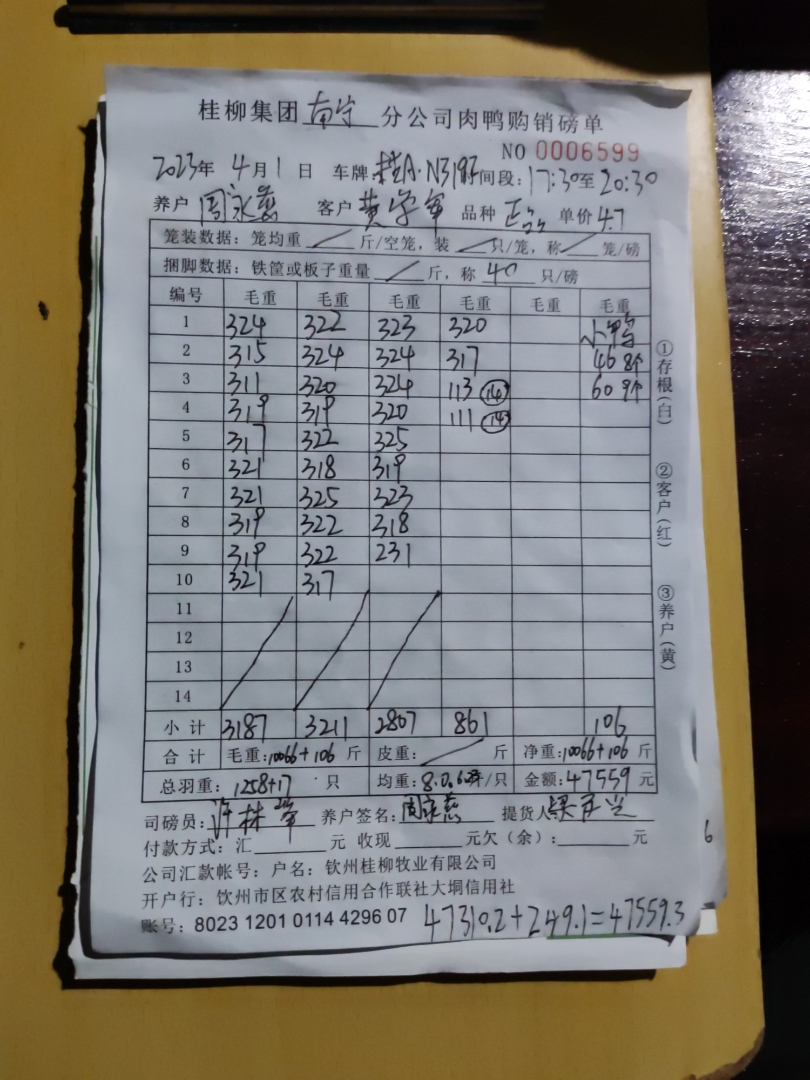 桂柳集团 南宁 分公司肉鸭购销磅单
NO 0006599
2023年 4月1日 车牌 桂A·N319 时间段:17:30至20:30
养户 周永 客户 黄学军 品种 正品 单价4.7
笼装数据:笼均重 / 斤/空笼,装 / 只/笼,称 / 笼/磅
捆脚数据:铁筐或板子重量 / 斤,称 40 只/磅
编号 毛重 毛重 毛重 毛重 毛重 毛重
1 324 322 323 320 小鸭
2 315 324 324 317 46 8个
3 311 320 324 113 (14) 60 9个
4 319 319 320 111 (14)
5 317 322 325
6 321 318 319
7 321 325 323
8 319 322 318
9 319 322 231
10 321 317
11
12
13
14
小计 3187 3211 2807 861 106
合计 毛重:10066+106 斤 皮重: / 斤 净重:10066+106 斤
总羽重: 1258+17 只 均重:8.0 /只 金额:47559 元
司磅员:许林 养户签名:周永 提货人
付款方式:汇 元 收现 元欠(余): 元
公司汇款帐号:户名:钦州桂柳牧业有限公司
开户行:钦州市区农村信用合作联社大垌信用社
账号:8023 1201 0114 4296 07
47310.2+249.1=47559.3
①存根(白)
②客户(红)
③养户(黄)
6